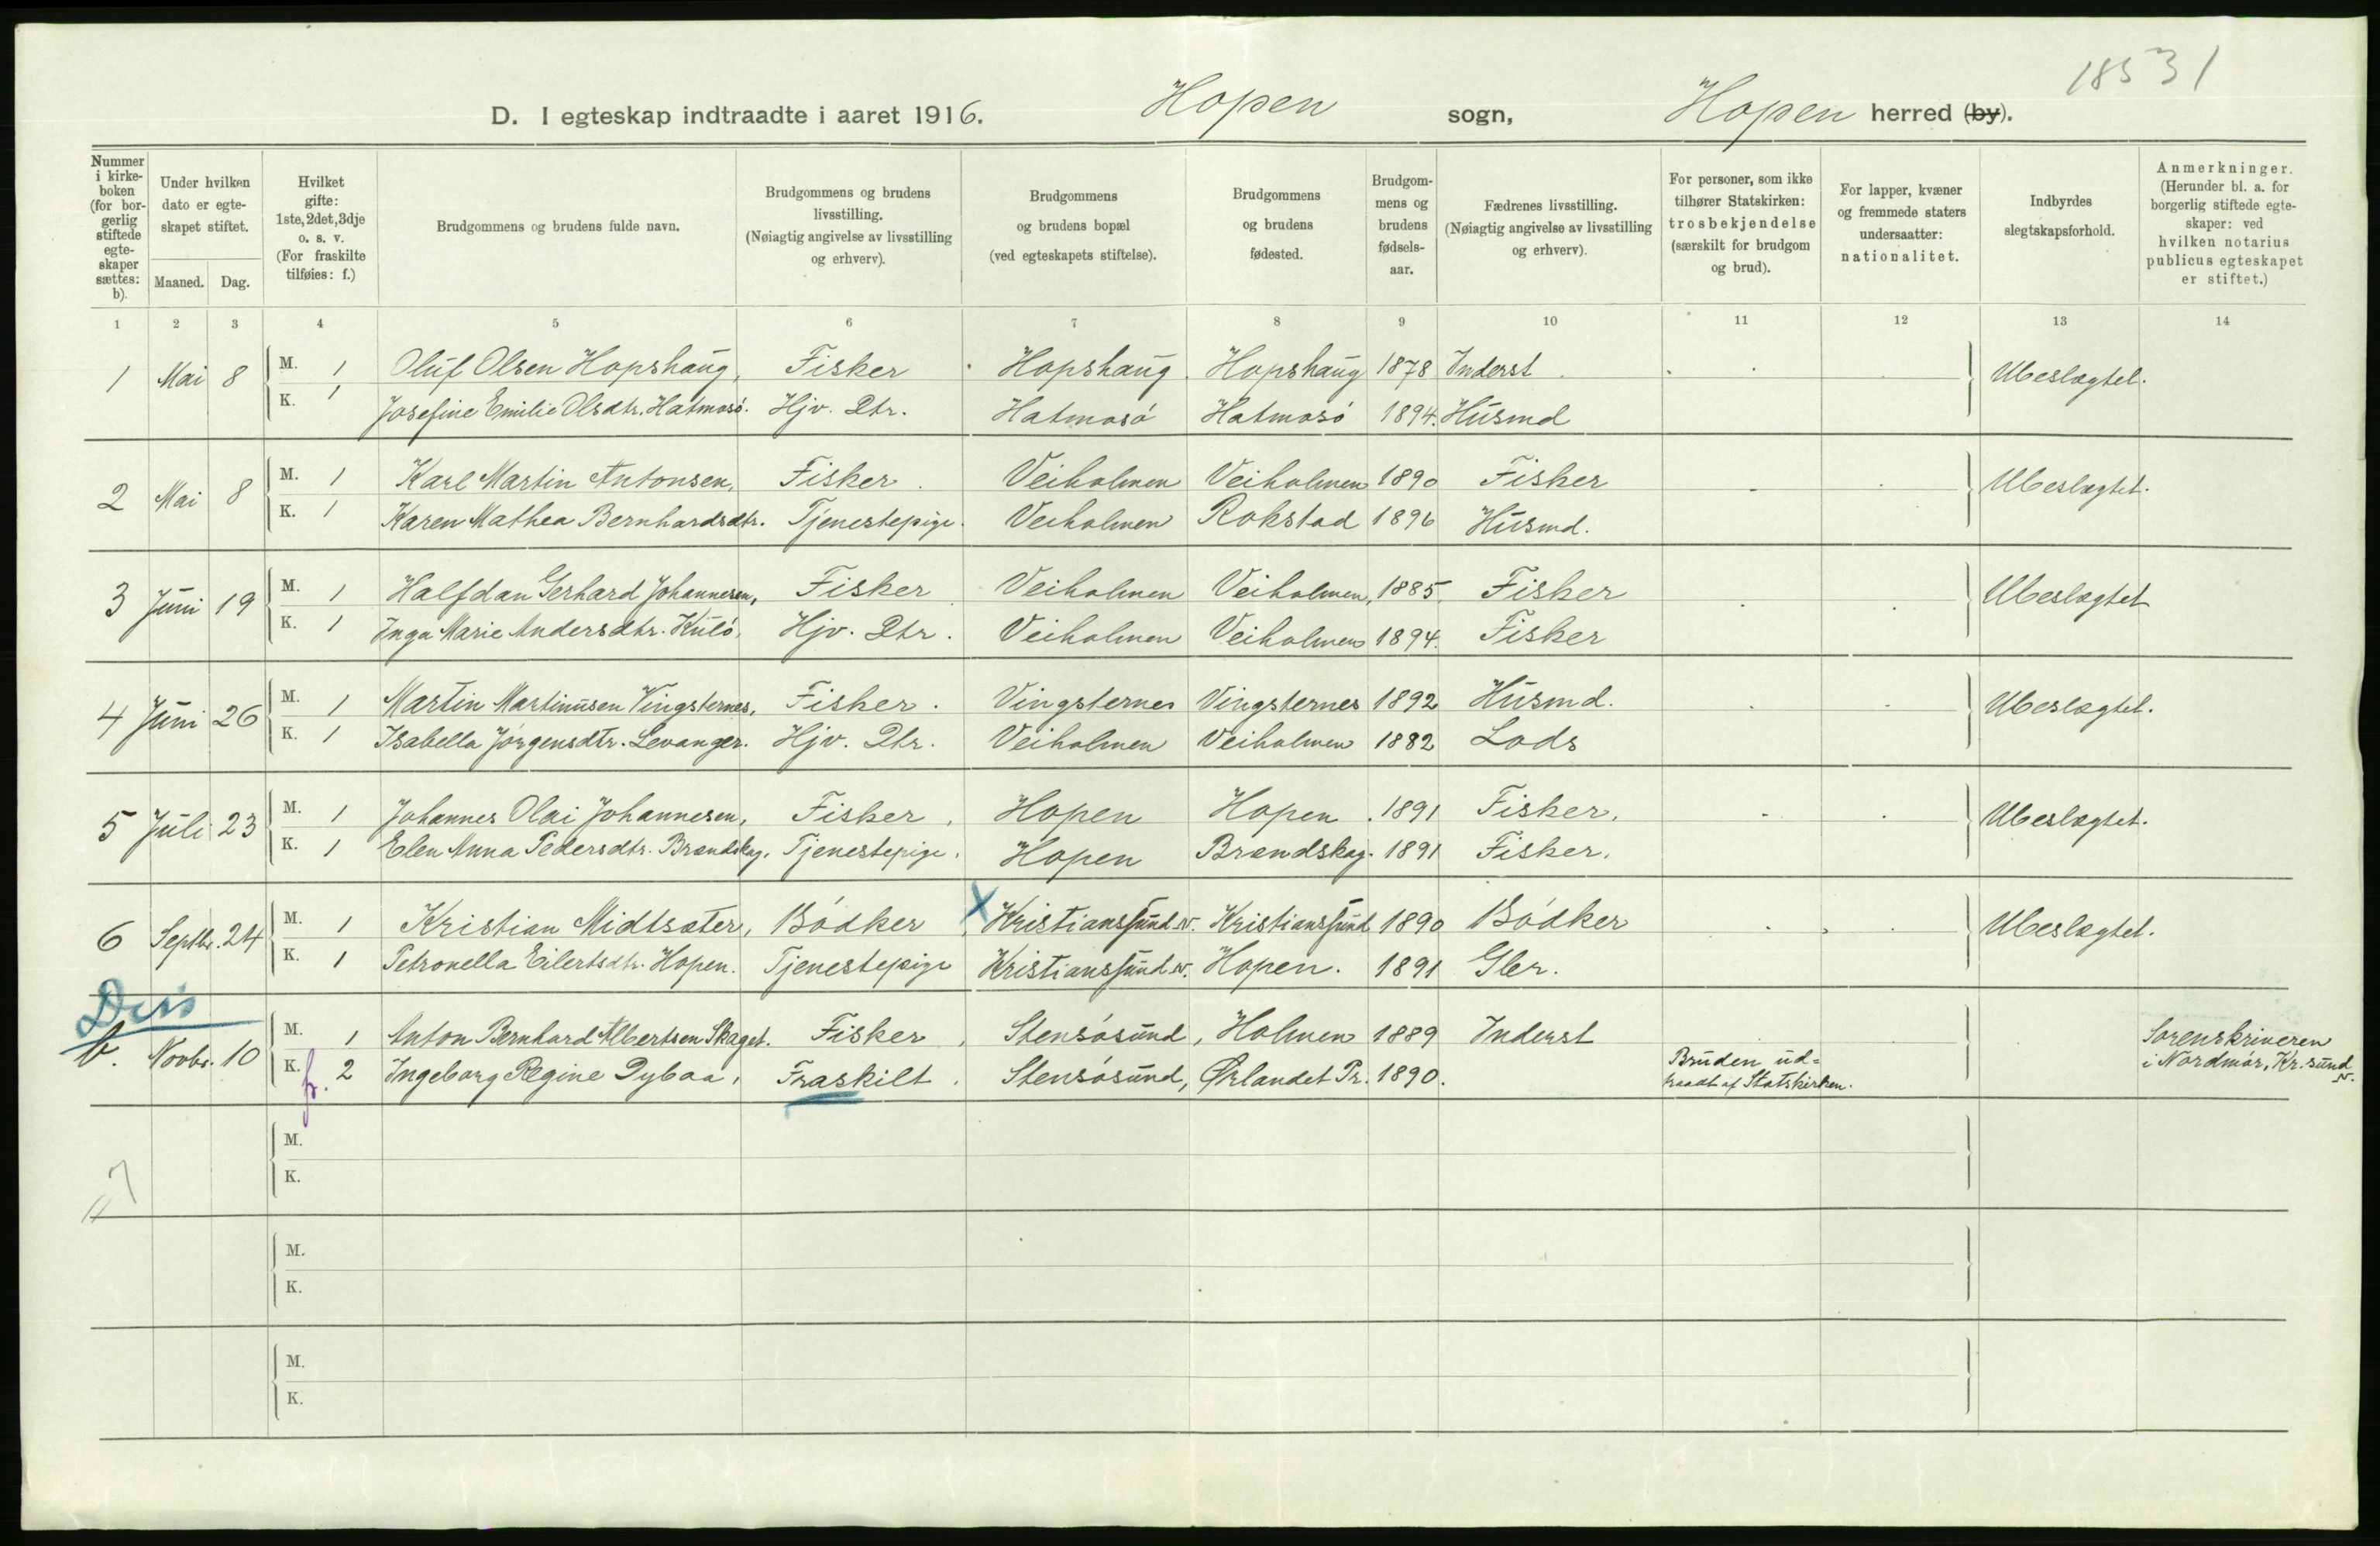 18531
D. I egteskap indtraadte i aaret 1916. Hopen sogn, Hopen herred (by).
Nummer i kirkeboken (for borgerlig stiftede egteskaper sættes: b).
Under hvilken dato er egteskapet stiftet.
Maaned. Dag.
Hvilket gifte: 1ste, 2det, 3dje o. s. v. (For fraskilte tilføies: f.)
Brudgommens og brudens fulde navn.
Brudgommens og brudens livsstilling. (Nøiagtig angivelse av livsstilling og erhverv).
Brudgommens og brudens bopæl (ved egteskapets stiftelse).
Brudgommens og brudens fødested.
Brudgommens og brudens fødselsaar.
Fædrenes livsstilling. (Nøiagtig angivelse av livsstilling og erhverv).
For personer, som ikke tilhører Statskirken: trosbekjendelse (særskilt for brudgom og brud).
For lapper, kvæner og fremmede staters undersaatter: nationalitet.
Indbyrdes slegtskapsforhold.
Anmerkninger. (Herunder bl. a. for borgerlig stiftede egteskaper: ved hvilken notarius publicus egteskapet er stiftet.)
1 2 3 4 5 6 7 8 9 10 11 12 13 14
1 Mai 8 M. 1 Oluf Olsen Hopshaug, Fisker Hopshaug. Hopshaug 1878 Inderst. Ubeslægtet.
K. 1 Josefine Emilie Olsdtr. Hatmosö. Hjv. Dtr. Hatmosö Hatmosö 1894. Husmd
2 Mai 8 M. 1 Karl Martin Antonsen, Fisker. Veiholmen Veiholmen 1890 Fisker Ubeslægtet.
K. 1 Karen Mathea Bernhardsdtr. Tjenestepige. Veiholmen Rokstad 1896 Husmd.
3 Juni 19 M. 1 Halfdan Gerhard Johannesen, Fisker. Veiholmen Veiholmen, 1885. Fisker Ubeslægtet
K. 1 Inga Marie Andersdtr. Kulö, Hjv. Dtr. Veiholmen Veiholmen 1894. Fisker
4 Juni 26 M. 1 Martin Martinusen Vingsternes, Fisker. Vingsternes Vingsternes 1892 Husmd. Ubeslægtet.
K. 1 Isabella Jörgensdtr. Levanger. Hjv. Dtr. Veiholmen Veiholmen 1882 Lods
5 Juli 23 M. 1 Johannes Olai Johannesen, Fisker, Hopen Hopen. 1891 Fisker. Ubeslægtet.
K. 1 Elen Anna Pedersdtr. Brændskag. Tjenestepige. Hopen Brændskag. 1891 Fisker.
6 Septbr. 24 M. 1 Kristian Midtsæter, Bödker X Kristianssund N. Kristianssund 1890 Bödker Ubeslægtet.
K. 1 Petronella Eilertsdtr. Hopen. Tjenestepige Kristianssund N. Hopen. 1891 Gbr.
Diss
b. Novbr. 10 M. 1 Anton Bernhard Albertsen Skaget. Fisker, Stensösund, Holmen 1889 Inderst Sorenskriveren
K. f. 2 Ingeborg Regine Dybaa, Fraskilt. Stensösund, Ørlandet Pr. 1890. Bruden ud= i Nordmör, Kr.sund
traadt af Statskirken. N.
M.
K.
7
M.
K.
M.
K.